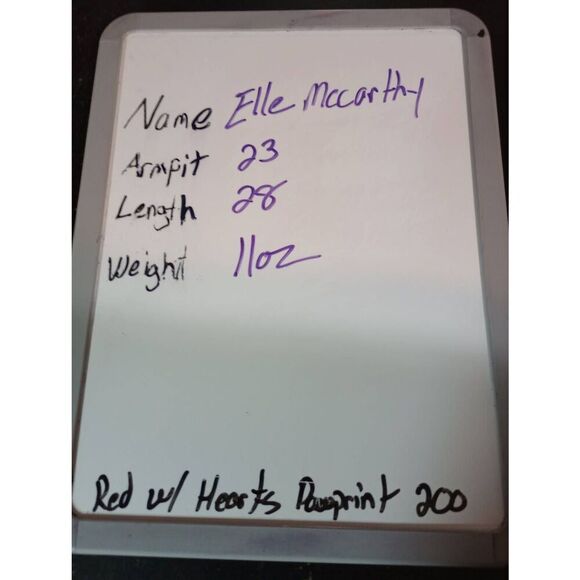 Name Elle Mccarthy
Armpit 23
Length 28
Weight 11oz
Red w/ Hearts Pawprint 200